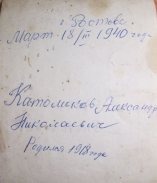 г. Ростов.
Март 18/III 1940 год
Католиков Александр
Николаевич
Родился 1918 года